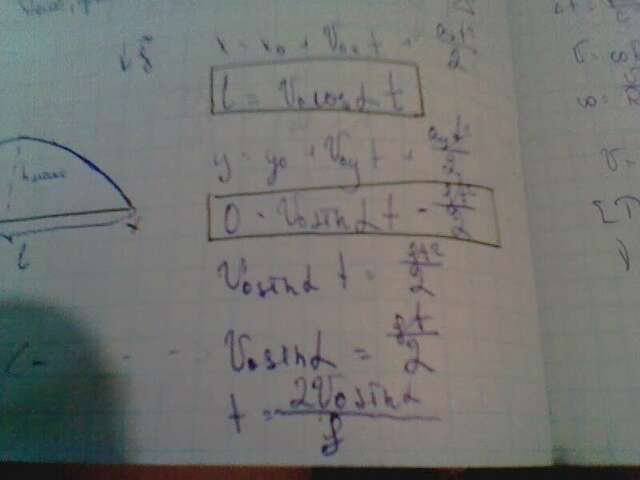 ↓g
x = x₀ + V₀ₓt + aₓt²/2
l = V₀cosα t
y = y₀ + V₀yt + a_yt²/2
hмакс
0 = V₀sinα t - gt²/2
l
V₀sinα t = gt²/2
V₀sinα = gt/2
t = 2V₀sinα/g